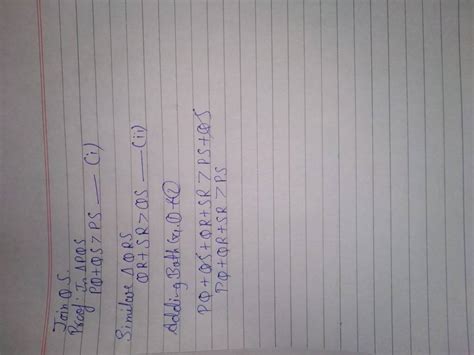 Join QS.
Proof: In △PQS
PQ + QS > PS — (i)
Similare △ QRS
QR + SR > QS — (ii)
Adding Both Eq. ① + ②
PQ + QS + QR + SR > PS + QS
PQ + QR + SR > PS